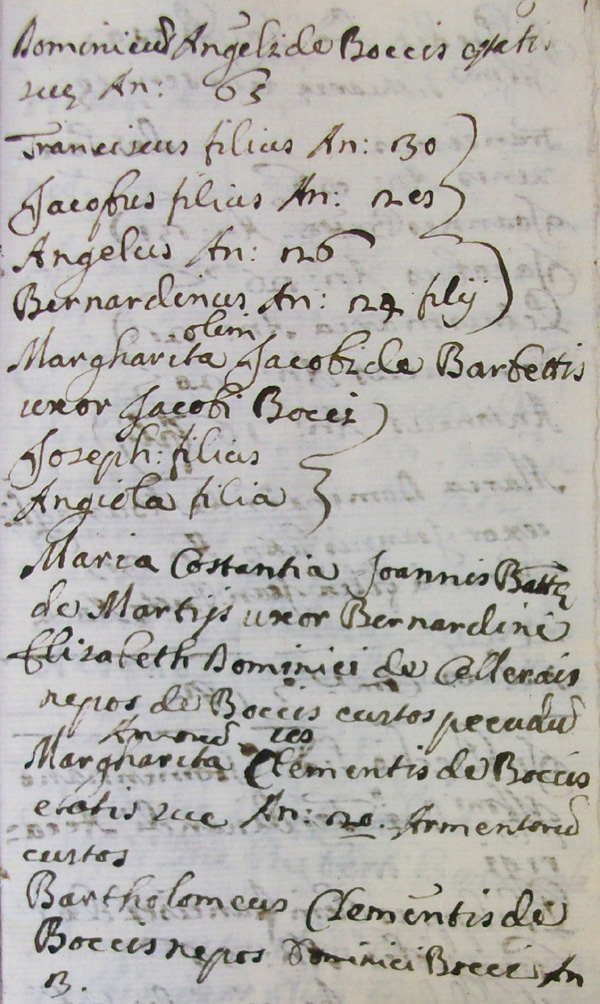 Dominicus Angeli de Boccis etatis
sue An: 63
Franciscus filius An: 30
Jacobus filius An: 28
Angelus An: 26
Bernardinus An: 24 filij
olim
Margharita Jacobi de Barbettis
uxor Jacobi Bocci
Joseph: filius
Angiola filia
Maria Costantia Joannis Battę
de Martijs uxor Bernardini
Elizabeth Dominici de Cellerais
nepos de Boccis custos pecudū
Margharita Clementis de Boccis
etatis sue An: 20. Armentorū
custos
Bartholomeus Clementis de
Boccis nepos Dominici Bocci An
13.